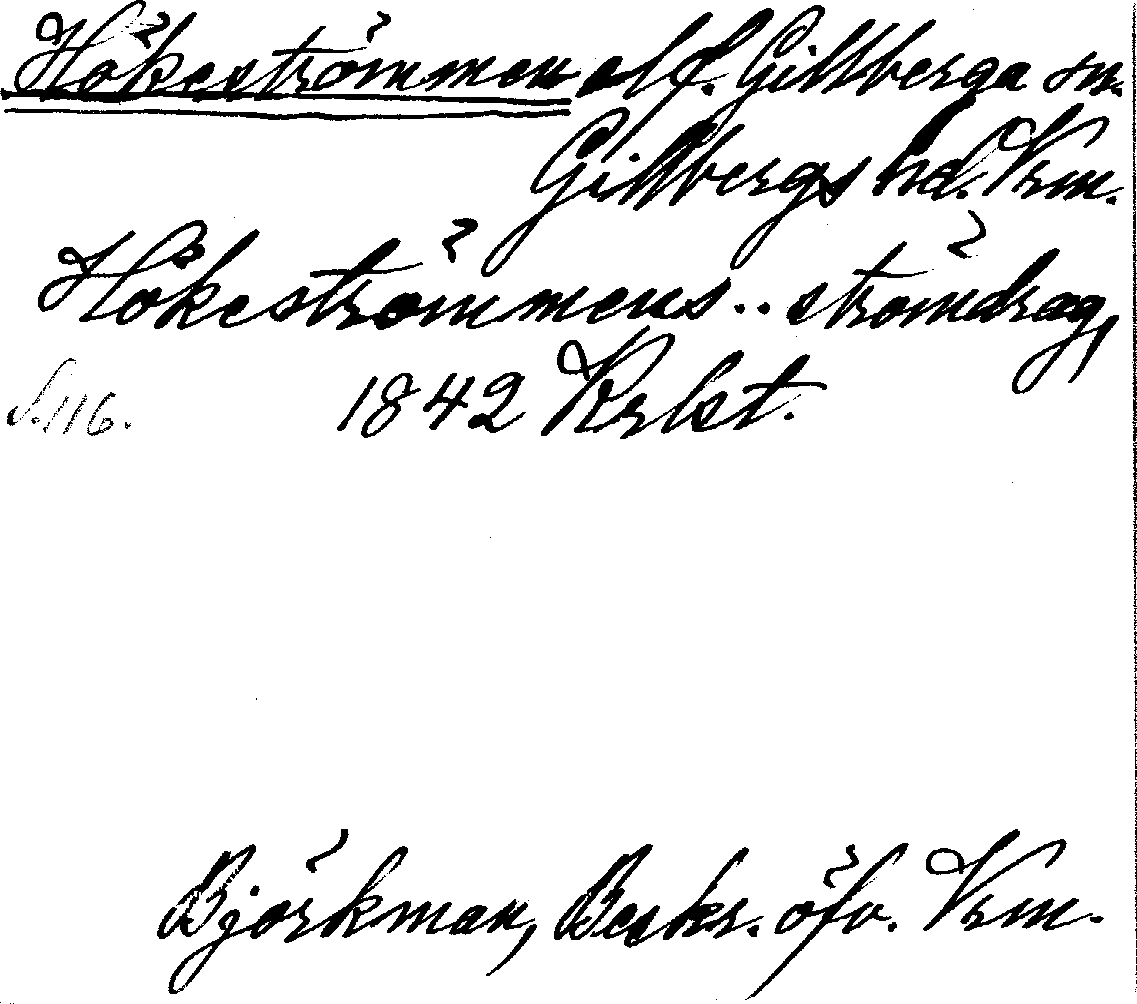 Hökeströmmen elf. Gillberga sn.
Gillbergs hd. Vrm.
Hökeströmmens .. strömdrag,
S. 116. 1842 Krlst.
Björkman, Beskr. öfv. Vrm.